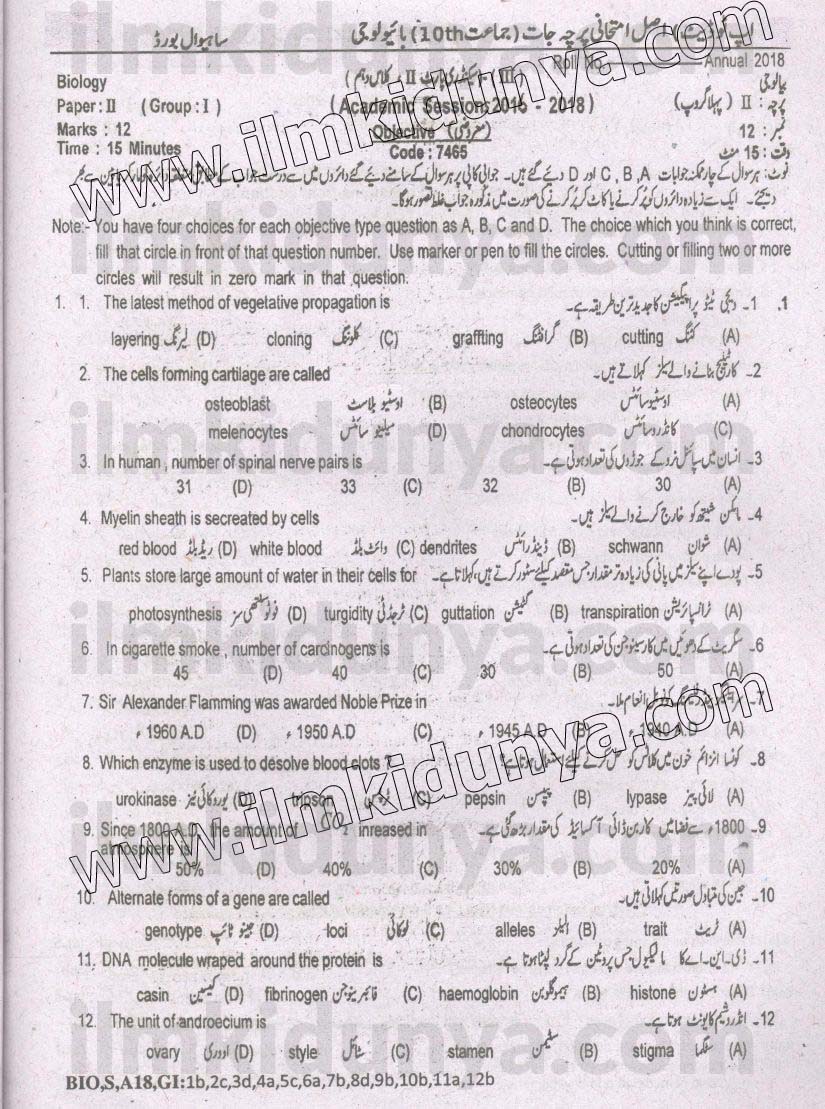 اپ ٹو ڈیٹ اصل امتحانی پرچہ جات (جماعت 10th) بائیولوجی ساہیوال بورڈ
Roll No. Annual 2018
Biology بیالوجی
Paper : II ( Group : I ) (Academic Sessions 2016 - 2018) پرچہ : II (پہلا گروپ)
Marks : 12 Objective (معروضی) نمبر : 12
Time : 15 Minutes Code : 7465 وقت : 15 منٹ
نوٹ: ہر سوال کے چار ممکنہ جوابات C, B, A اور D دیئے گئے ہیں۔ جوابی کاپی پر ہر سوال کے سامنے دیئے گئے دائروں میں سے درست جواب کے مطابق متعلقہ دائرہ کو مارکر یا پین سے بھر
دیجئے۔ ایک سے زیادہ دائروں کو پُر کرنے یا کاٹ کر پُر کرنے کی صورت میں مذکورہ جواب غلط تصور ہوگا۔
Note:- You have four choices for each objective type question as A, B, C and D. The choice which you think is correct,
fill that circle in front of that question number. Use marker or pen to fill the circles. Cutting or filling two or more
circles will result in zero mark in that question.
1. 1. The latest method of vegetative propagation is 1۔ ویجی ٹیٹو پراپیگیشن کا جدید ترین طریقہ ہے۔ .1
layering لیرنگ (D) cloning کلوننگ (C) graffting گرافٹنگ (B) cutting کٹنگ (A)
2. The cells forming cartilage are called 2۔ کارٹیلیج بنانے والے سیلز کہلاتے ہیں۔
osteoblast اوسٹیو بلاسٹ (B) osteocytes اوسٹیوسائٹس (A)
melenocytes میلینو سائٹس (D) chondrocytes کانڈروسائٹس (C)
3. In human , number of spinal nerve pairs is 3۔ انسان میں سپائنل نرو کے جوڑوں کی تعداد ہوتی ہے۔
31 (D) 33 (C) 32 (B) 30 (A)
4. Myelin sheath is secreated by cells 4۔ مائلن شیتھ کو خارج کرنے والے سیلز ہیں۔
red blood ریڈ بلڈ (D) white blood وائٹ بلڈ (C) dendrites ڈینڈرائٹس (B) schwann شوان (A)
5. Plants store large amount of water in their cells for 5۔ پودے اپنے سیلز میں پانی کی زیادہ تر مقدار جس مقصد کیلئے سٹور کرتے ہیں، کہلاتا ہے۔
photosynthesis فوٹو سنتھی سز (D) turgidity ٹرجڈٹی (C) guttation گٹیشن (B) transpiration ٹرانسپائریشن (A)
6. In cigarette smoke , number of carcinogens is 6۔ سگریٹ کے دھوئیں میں کارسینوجن کی تعداد ہوتی ہے۔
45 (D) 40 (C) 30 (B) 50 (A)
7. Sir Alexander Flamming was awarded Noble Prize in 7۔ انعام ملا۔
1960 A.D ء (D) 1950 A.D ء (C) 1945 A.D ء (B) 1940 A.D ء (A)
8. Which enzyme is used to desolve blood clots ? 8۔ کونسا انزائم خون میں کلاٹس کو حل کرنے کیلئے استعمال ہوتا ہے؟
urokinase یوروکائی نیز (D) tripson (C) pepsin پیپسن (B) lypase لائی پیز (A)
9. Since 1800 A.D , the amount of CO2 inreased in 9۔ 1800ء سے فضا میں کاربن ڈائی آکسائیڈ کی مقدار بڑھ گئی ہے۔
atmosphere is
50% (D) 40% (C) 30% (B) 20% (A)
10. Alternate forms of a gene are called 10۔ جین کی متبادل صورتیں کہلاتی ہیں۔
genotype جینو ٹائپ (D) loci لوکائی (C) alleles الیلز (B) trait ٹریٹ (A)
11. DNA molecule wraped around the protein is 11۔ ڈی۔این۔اے کا مالیکیول جس پروٹین کے گرد لپٹا ہوتا ہے۔
casin کیسین (D) fibrinogen فائبرینوجن (C) haemoglobin ہیموگلوبن (B) histone ہسٹون (A)
12. The unit of androecium is 12۔ انڈروشیم کا یونٹ ہوتا ہے۔
ovary اووری (D) style سٹائل (C) stamen سٹیمن (B) stigma سٹگما (A)
BIO,S,A18,GI:1b,2c,3d,4a,5c,6a,7b,8d,9b,10b,11a,12b
www.ilmkidunya.com
www.ilmkidunya.com
ilmkidunya.com
ilmkidunya.com
ilmkidunya.com
ilmkidunya.com
ilmkidunya.com
ilmkidunya.com